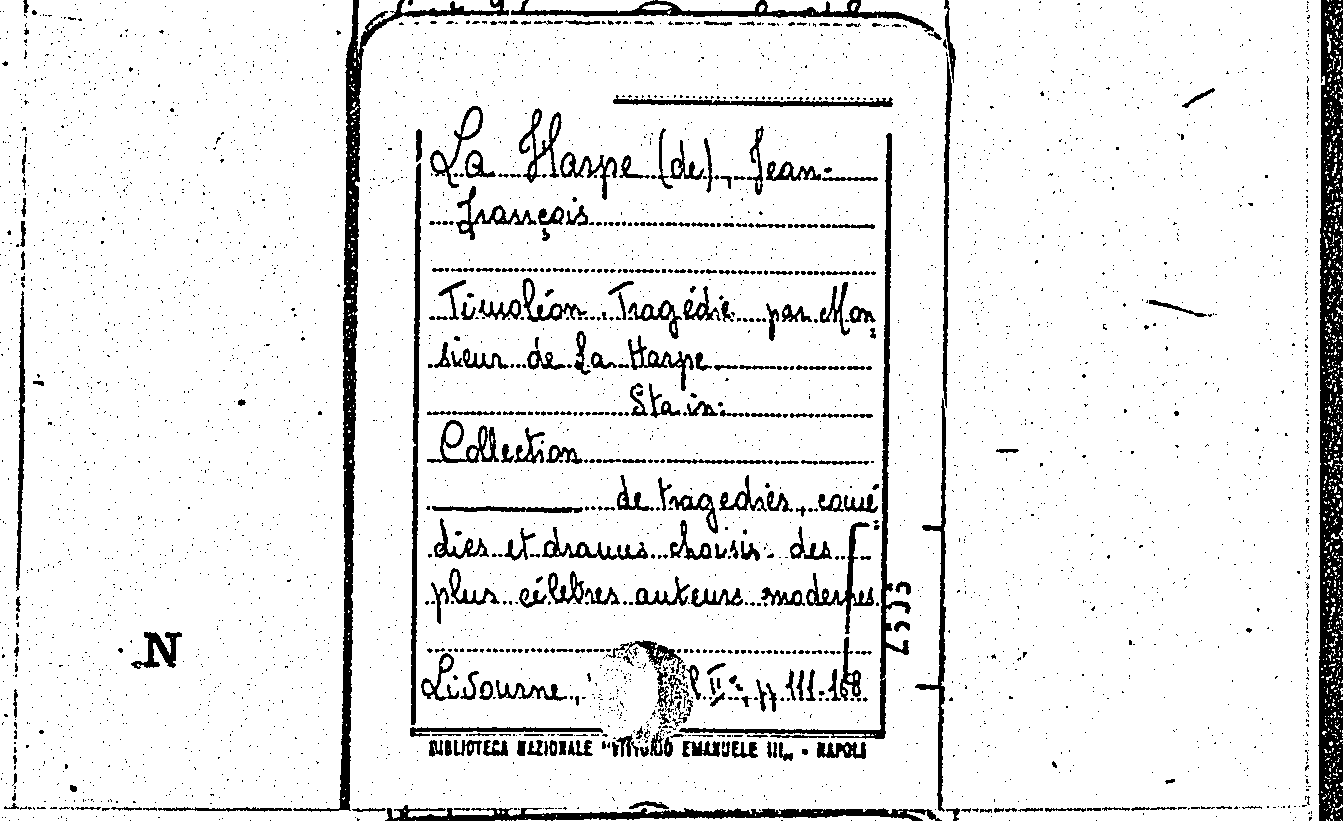 La Harpe (de), Jean-
François
Timoléon. Tragédie par Mon
sieur de La Harpe
Sta in:
Collection
de tragediès, comé
dies et drames choisis des
plus célebres auteurs modernes
Livourne, II°, pp 111-168
BIBLIOTECA NAZIONALE "VITTORIO EMANUELE III„ - NAPOLI
N